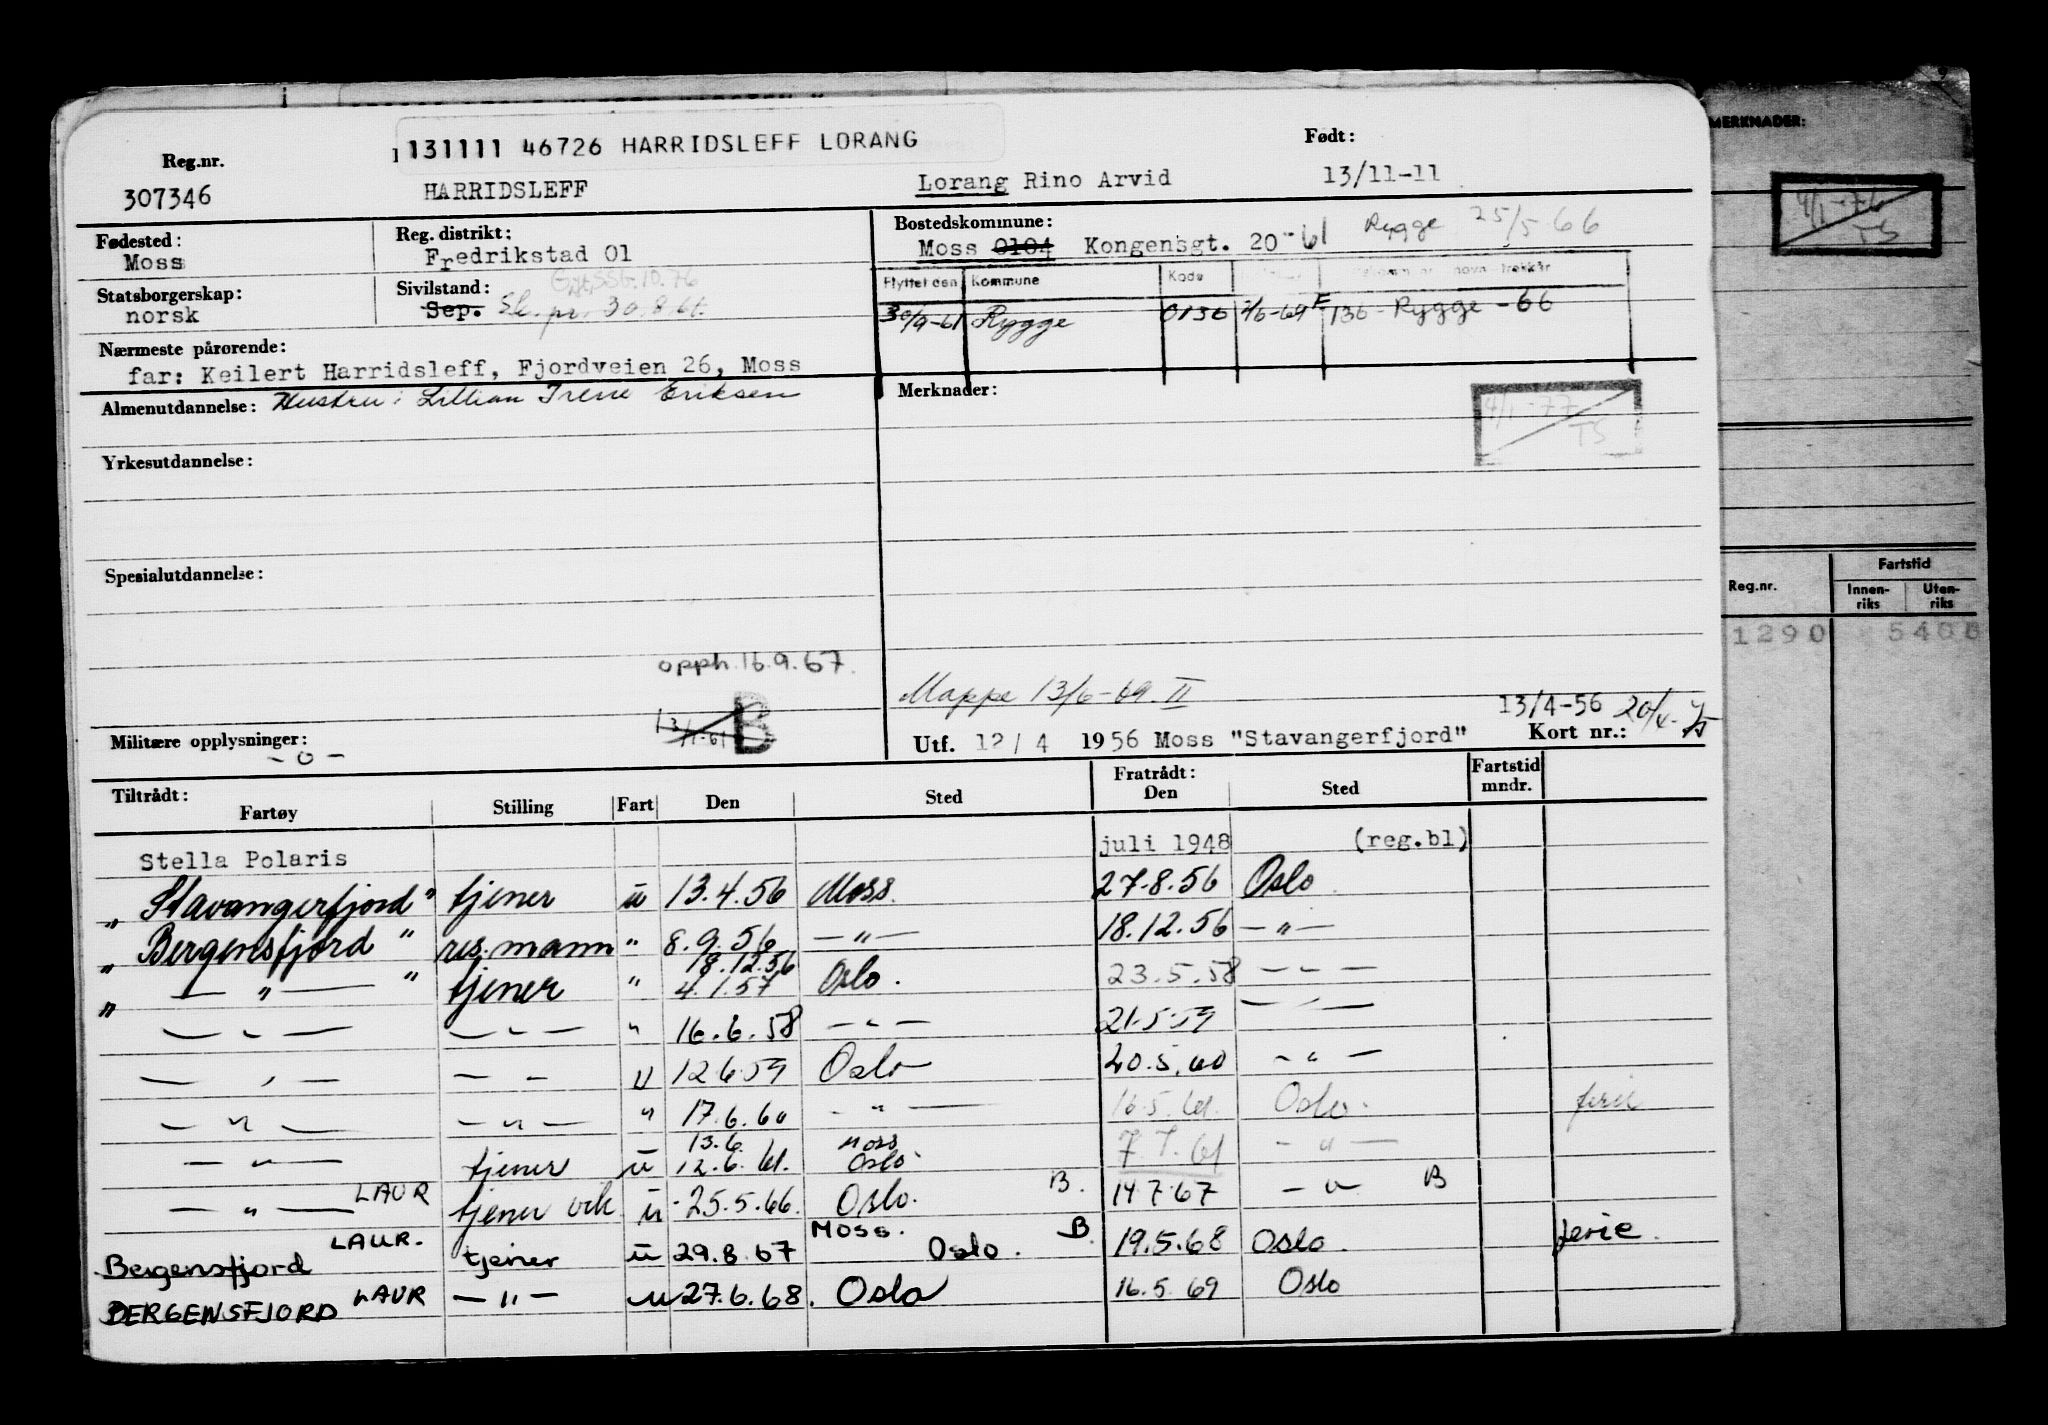 131111 46726 HARRIDSLEFF LORANG
Reg.nr. Født:
307346 HARRIDSLEFF Lorang Rino Arvid 13/11-11
Fødested: Moss
Reg. distrikt: Fredrikstad 01
Bostedskommune: Rygge 25/5-66
Moss 0104 Kongensgt. 20 -61
Statsborgerskap: norsk
Sivilstand: Sep.
Flyttet den Kommune Kode
30/9-61 Rygge 0136 136 - Rygge - 66
Nærmeste pårørende:
far: Keilert Harridsleff, Fjordveien 26, Moss
Almenutdannelse: Hustru: Lillian Irene Eriksen
Merknader:
4/1-77
TS
Yrkesutdannelse:
Spesialutdannelse:
opph. 16.9.67.
B
Mappe 13/6-69. II
13/4-56
Militære opplysninger:
- o -
Utf. 12/4 1956 Moss "Stavangerfjord" Kort nr.:
Tiltrådt: Fratrådt: Fartstid
Fartøy Stilling Fart Den Sted Den Sted mndr.
Stella Polaris juli 1948 (reg.bl)
" Stavangerfjord " tjener u 13.4.56 Moss. 27.8.56 Oslo.
" Bergensfjord " res.mann " 8.9.56 — " — 18.12.56 — " —
18.12.56
" — " — " tjener " 4.1.57 Oslo. 23.5.58 — " —
— " — — " — " 16.6.58 — " — 21.5.59 — —
— " — — — u 12.6.59 Oslo 20.5.60 — " —
— " — — " — " 17.6.60 — " — 16.5.61. Oslo. ferie
13.6 Moss
— " — tjener u 12.6.61. Oslo 7.7.61 — " —
— " — LAUR tjener u 25.5.66. Oslo. B. 14.7.67 — " — B
Moss.
Bergensfjord LAUR. tjener u 29.8.67 Oslo. B 19.5.68 Oslo. ferie.
BERGENSFJORD LAUR — " — u 27.6.68. Oslo 16.5.69 Oslo
MERKNADER:
4/1-76
TS
Reg.nr. Fartstid
Innen-riks Uten-riks
1290 5400